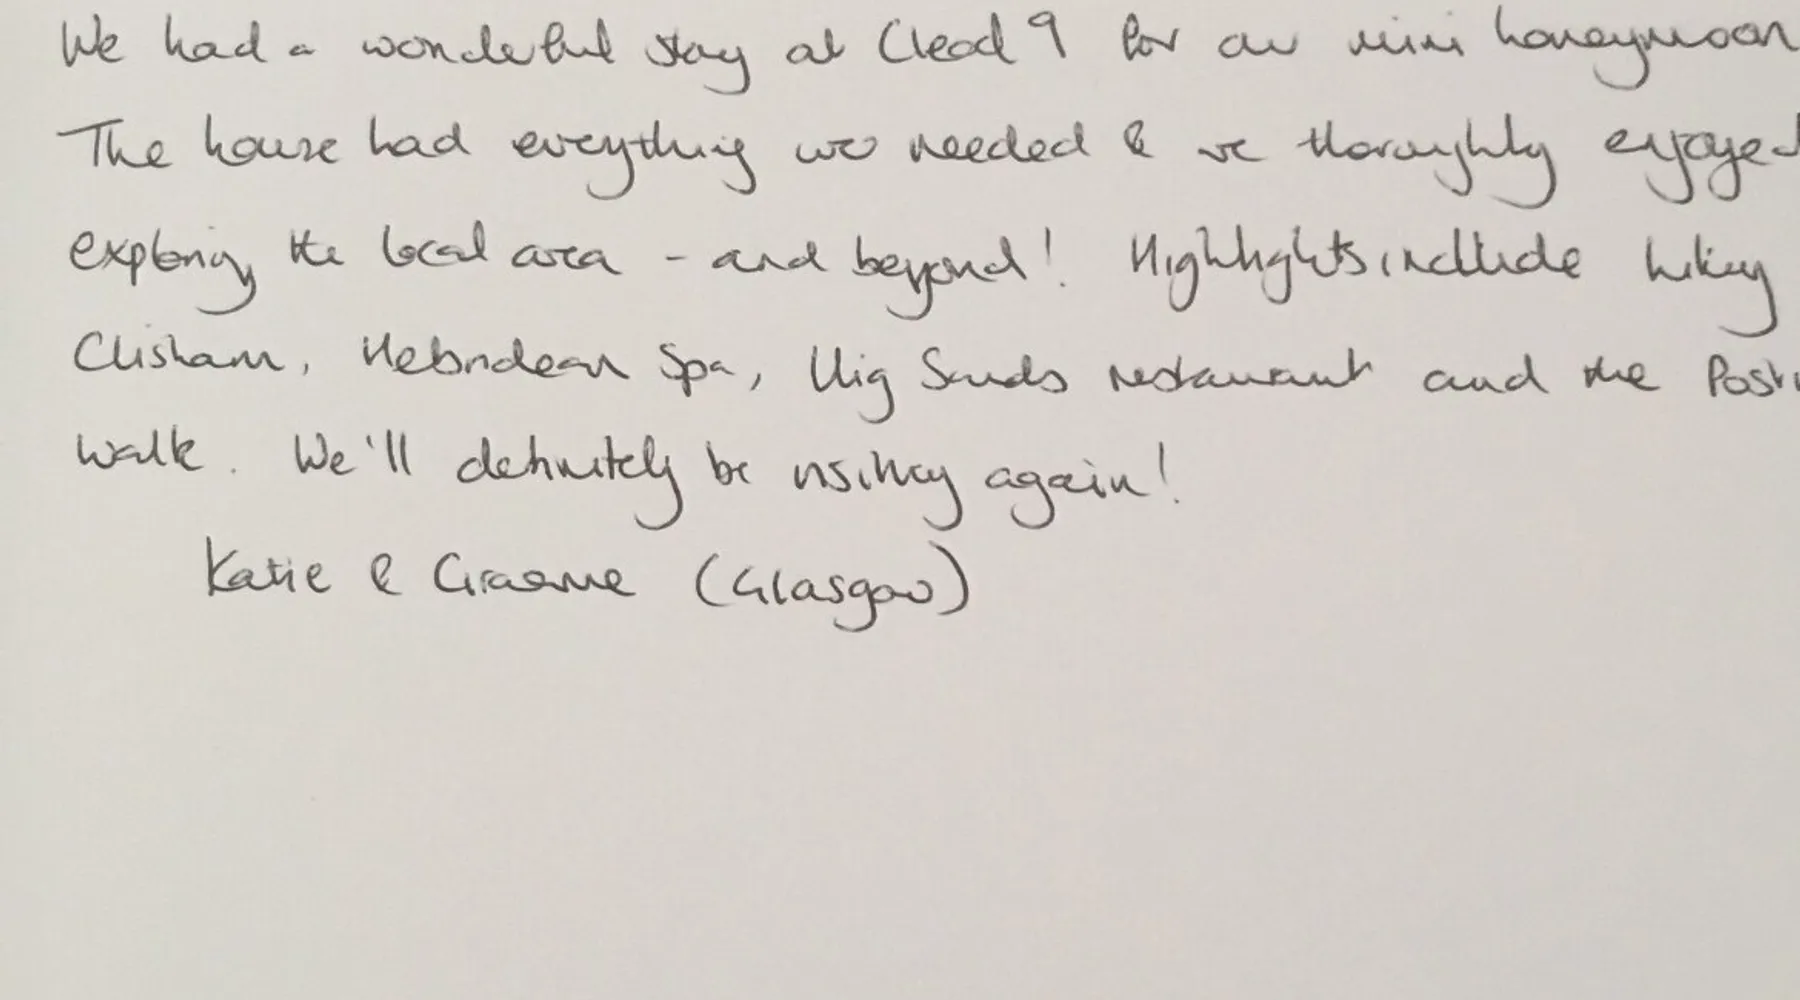 We had a wonderful stay at Cleod 9 for our mini honeymoon
The house had everything we needed & we thoroughly enjoyed
exploring the local area - and beyond! Highlights include hiking
Clisham, Hebridean Spa, Uig Sands restaurant and the
walk. We'll definitely be visiting again!
Katie & Graeme (Glasgow)